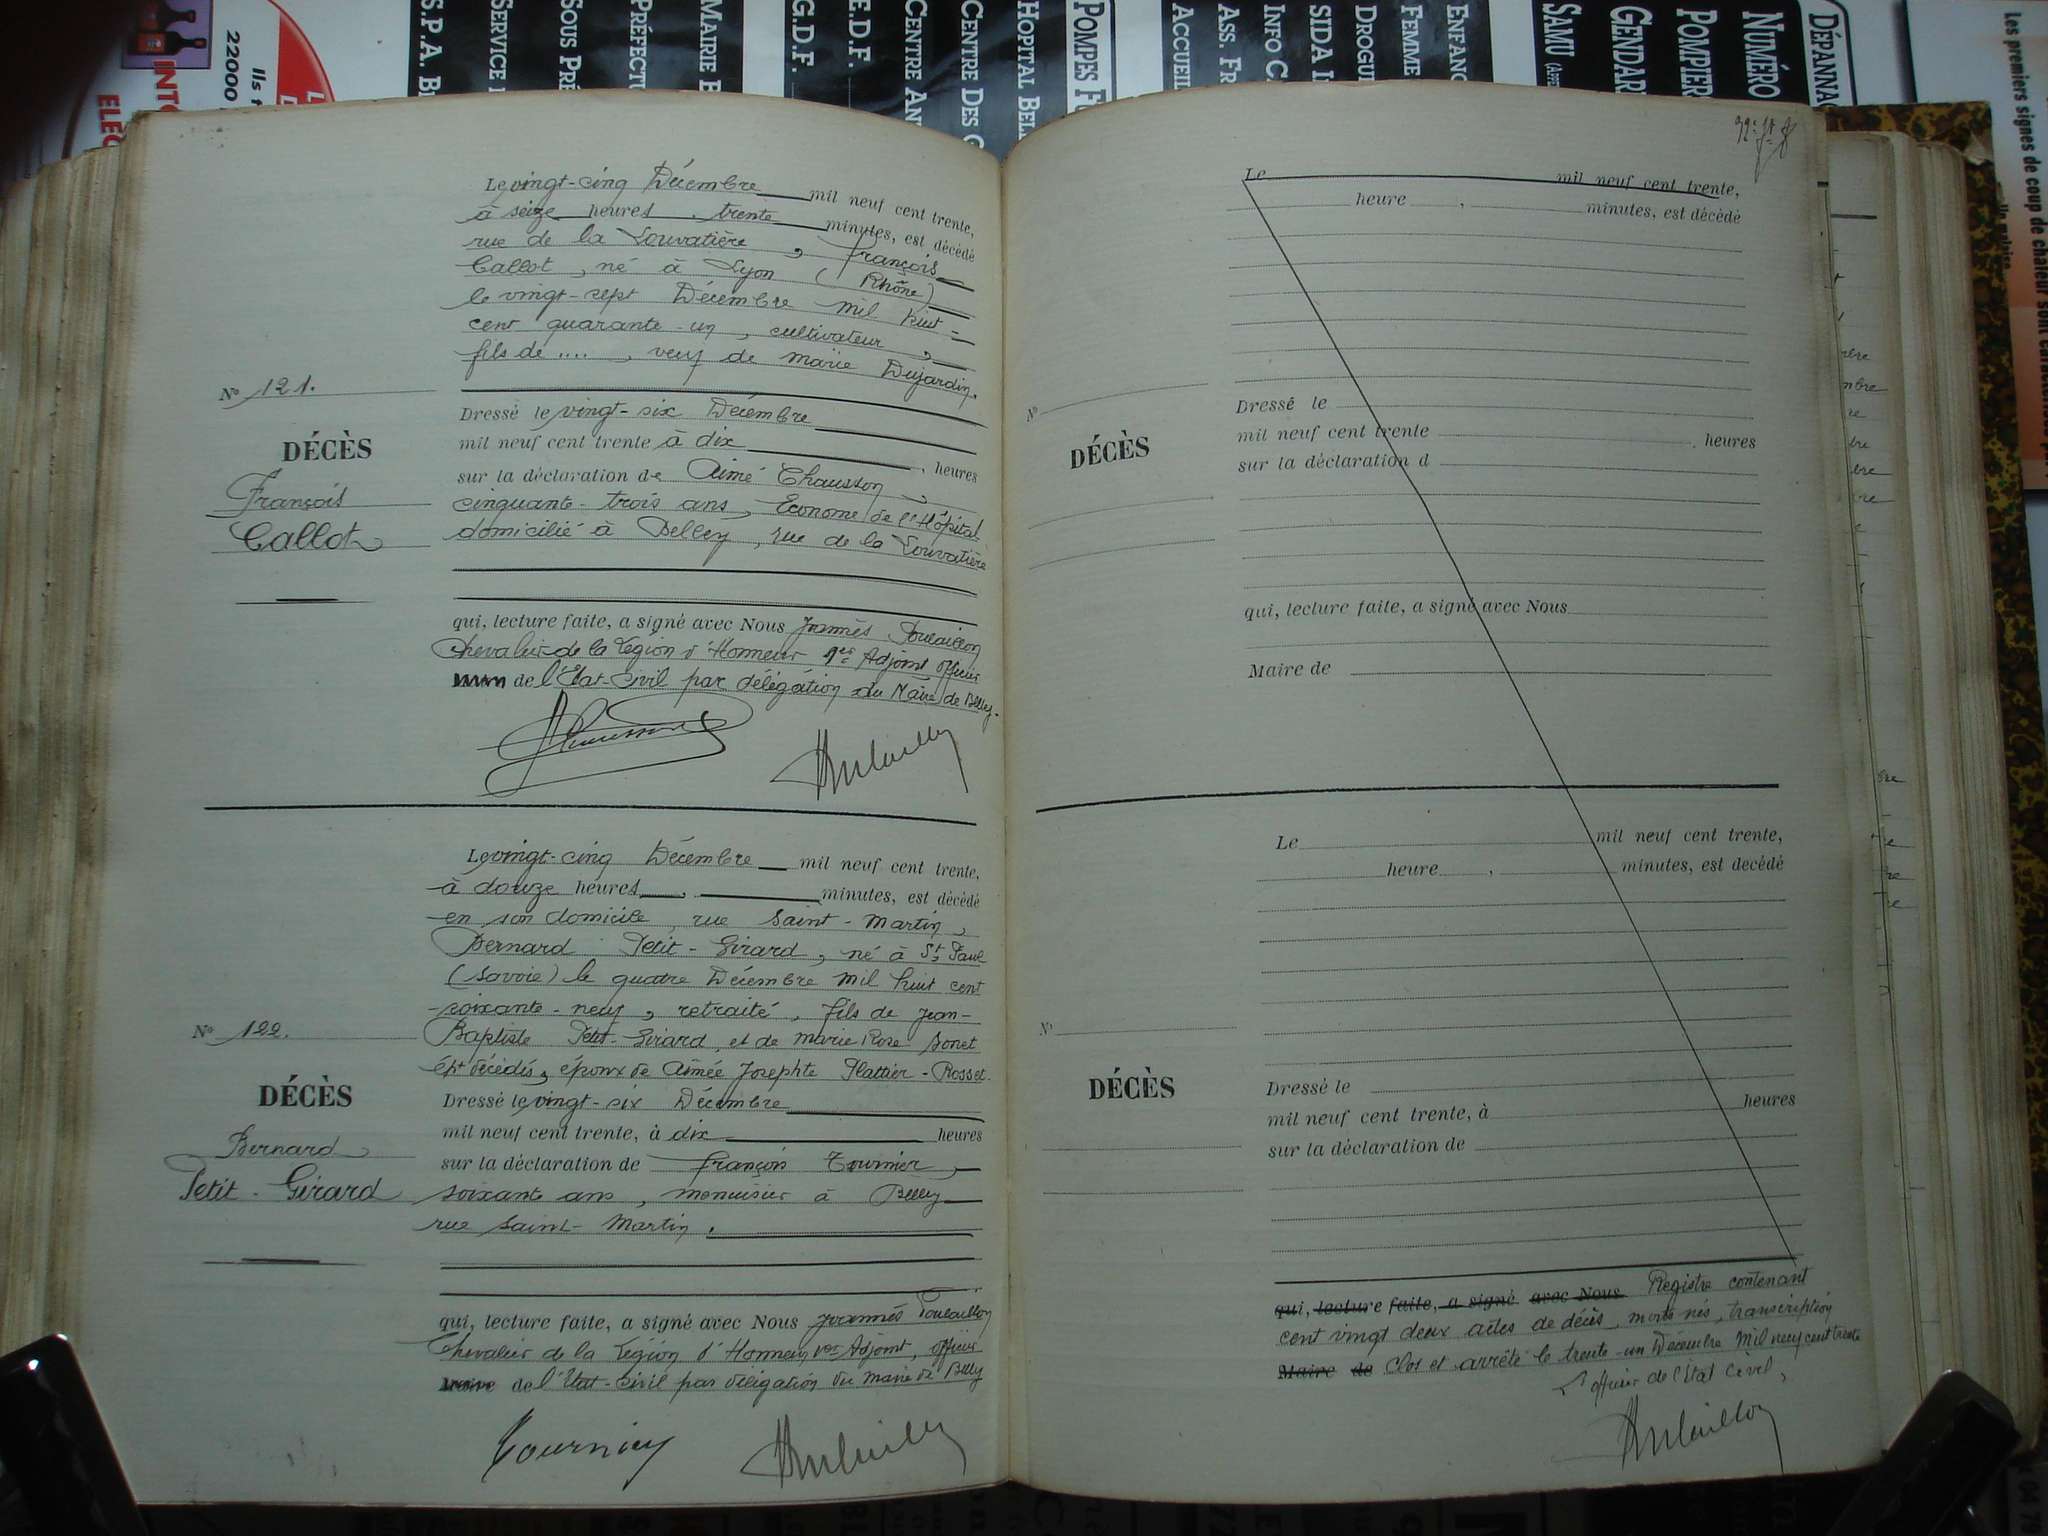 S.P.A. B
SERVICE
SOUS PRÉ
PRÉFECTU
MAIRIE B
G.D.F.
E.D.F.
CENTRE AN
CENTRE DES
HOPITAL BELL
POMPES F
ACCUEIL
ASS. FR
INFO C
SIDA I
DROGU
FEMME
ENFANC
SAMU (APPE
GENDAR
POMPIER
NUMÉRO
DÉPANNAG
Les premiers signes de coup de chaleur sont caracté
Ils
22000
INTO
ELEC
Le vingt-cinq Décembre mil neuf cent trente,
à seize heures, trente minutes, est décédé
rue de la Louvatière, François
Callot, né à Lyon (Rhône)
le vingt-sept Décembre mil huit-
cent quarante-un, cultivateur,
fils de ...., veuf de Marie Dujardin.
No 121.
DÉCÈS
François
Callot
Dressé le vingt-six Décembre
mil neuf cent trente à dix, heures
sur la déclaration de Aimé Chausson,
cinquante-trois ans, Econome de l'Hôpital
domicilié à Belley, rue de la Louvatière
qui, lecture faite, a signé avec Nous Joannès Poulaillon
Chevalier de la Légion d'Honneur 1er Adjoint officier
de l'Etat-Civil par délégation du Maire de Belley.
Le vingt-cinq Décembre mil neuf cent trente,
à douze heures, minutes, est décédé
en son domicile, rue Saint-Martin,
Bernard Petit-Girard, né à St Paul
(Savoie) le quatre Décembre mil huit cent
soixante-neuf, retraité, fils de Jean-
Baptiste Petit-Girard, et de Marie Rose Bonet
épx décédés, époux de Aimée Josephte Plattier-Rosset.
No 122.
DÉCÈS
Bernard
Petit-Girard
Dressé le vingt-six Décembre
mil neuf cent trente, à dix heures
sur la déclaration de François Tournier,
soixante ans, menuisier à Belley
rue Saint-Martin.
qui, lecture faite, a signé avec Nous Joannès Poulaillon
Chevalier de la Légion d'Honneur 1er Adjoint, officier
Maire de l'Etat-Civil par délégation du Maire de Belley
Tournier
Le mil neuf cent trente,
heure , minutes, est décédé
No
DÉCÈS
Dressé le
mil neuf cent trente , heures
sur la déclaration d
qui, lecture faite, a signé avec Nous
Maire de
Le mil neuf cent trente,
heure , minutes, est decédé
No
DÉCÈS
Dressé le
mil neuf cent trente, à heures
sur la déclaration de
qui, lecture faite, a signé avec Nous Registre contenant
cent vingt deux actes de décès, morts nés, transcription
Maire de Clos et arrêté le trente-un Décembre mil neuf cent trente
L'officier de l'Etat Civil,
Poulaillon